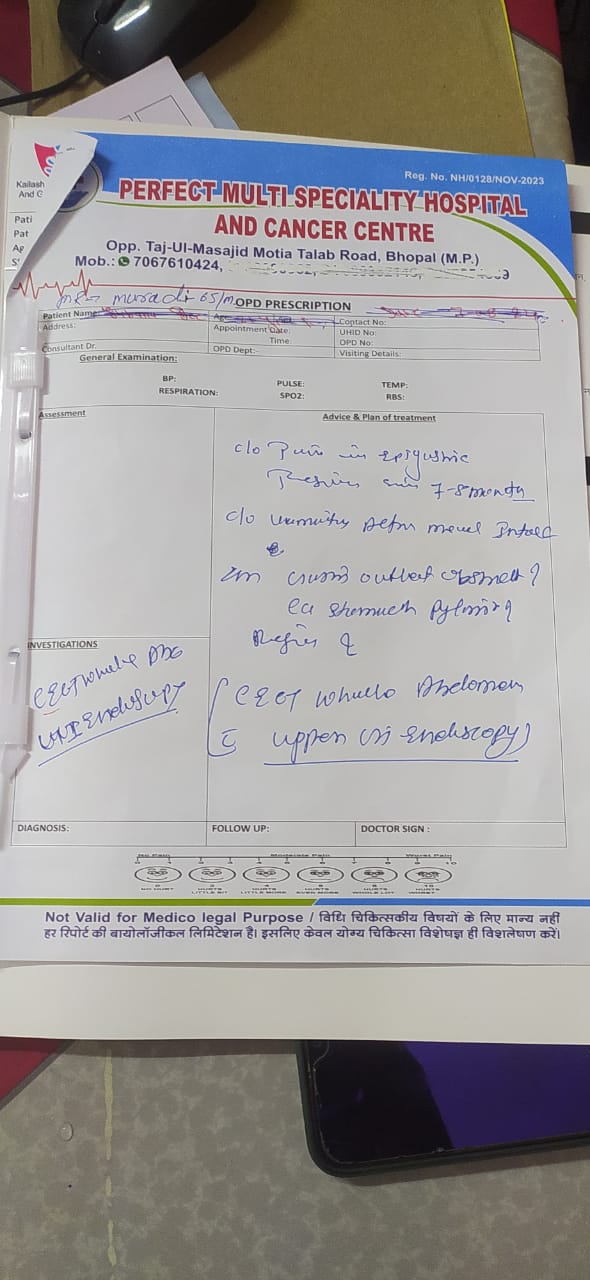 Reg. No. NH/0128/NOV-2023
Kailash
And C
PERFECT MULTI SPECIALITY HOSPITAL
AND CANCER CENTRE
Opp. Taj-Ul-Masajid Motia Talab Road, Bhopal (M.P.)
Mob.: 7067610424,
Pati
Pat
Ag
65/m
OPD PRESCRIPTION
Patient Name
Contact No:
Address:
Appointment Date:
UHID No:
Time:
OPD No:
Consultant Dr.
OPD Dept:-
Visiting Details:
General Examination:
BP:
PULSE:
TEMP:
RESPIRATION:
SPO2:
RBS:
Assessment
Advice & Plan of treatment
c/o Pain in epigastric
Region 7-8 month
c/o
outlet
Ca stomach
Region ?
INVESTIGATIONS
CECT whole Abd
UGI Endoscopy
CECT whole Abdomen
upper GI Endoscopy)
DIAGNOSIS:
FOLLOW UP:
DOCTOR SIGN :
No Pain
Moderate Pain
Worst Pain
NO HURT
HURTS LITTLE BIT
HURTS LITTLE MORE
HURTS EVEN MORE
HURTS WHOLE LOT
HURTS WORST
Not Valid for Medico legal Purpose / विधि चिकित्सकीय विषयों के लिए मान्य नहीं
हर रिपोर्ट की बायोलॉजीकल लिमिटेशन है। इसलिए केवल योग्य चिकित्सा विशेषज्ञ ही विशलेषण करें।